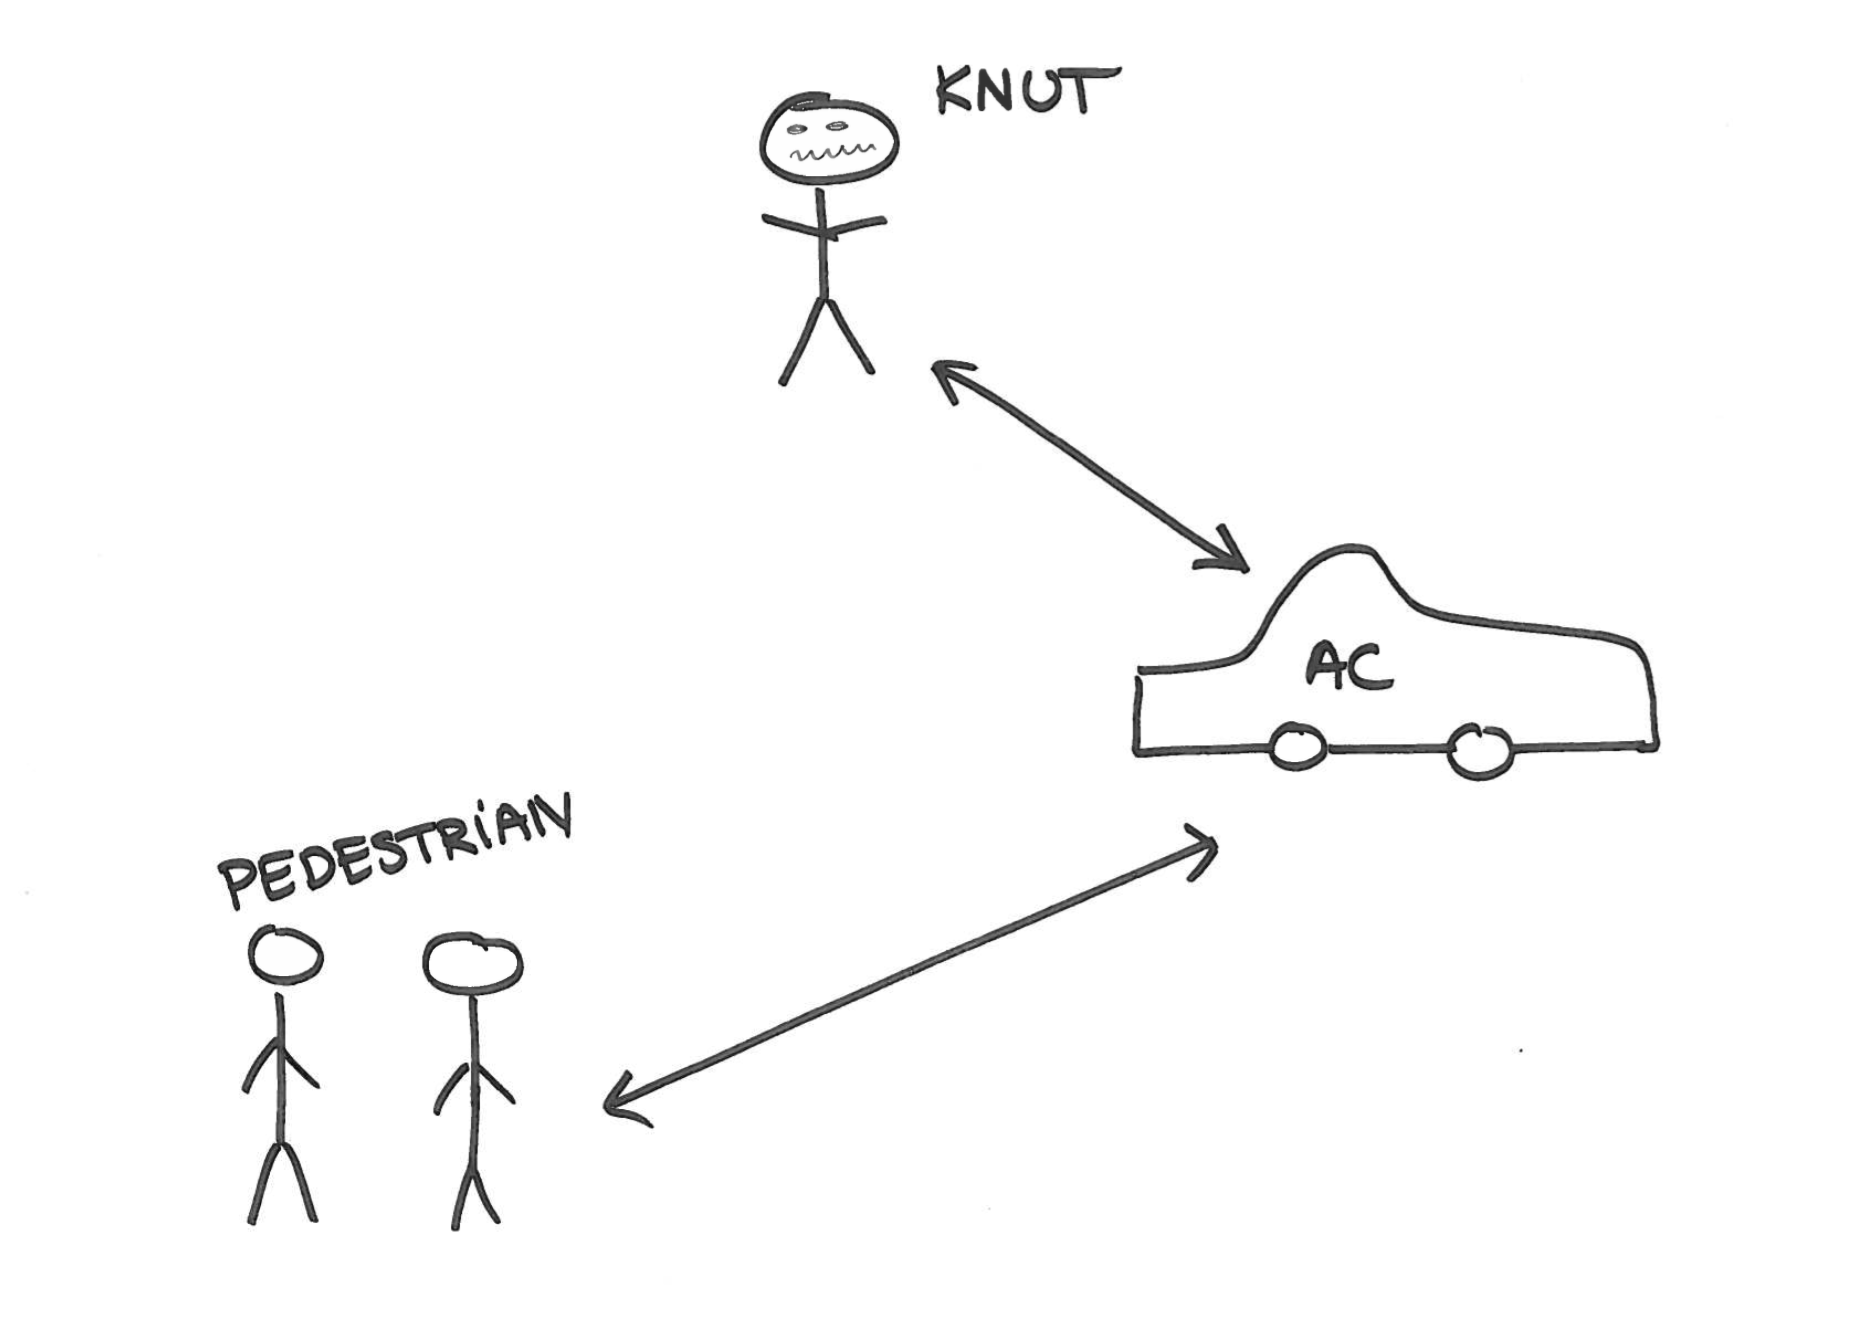 KNUT
AC
PEDESTRiAN